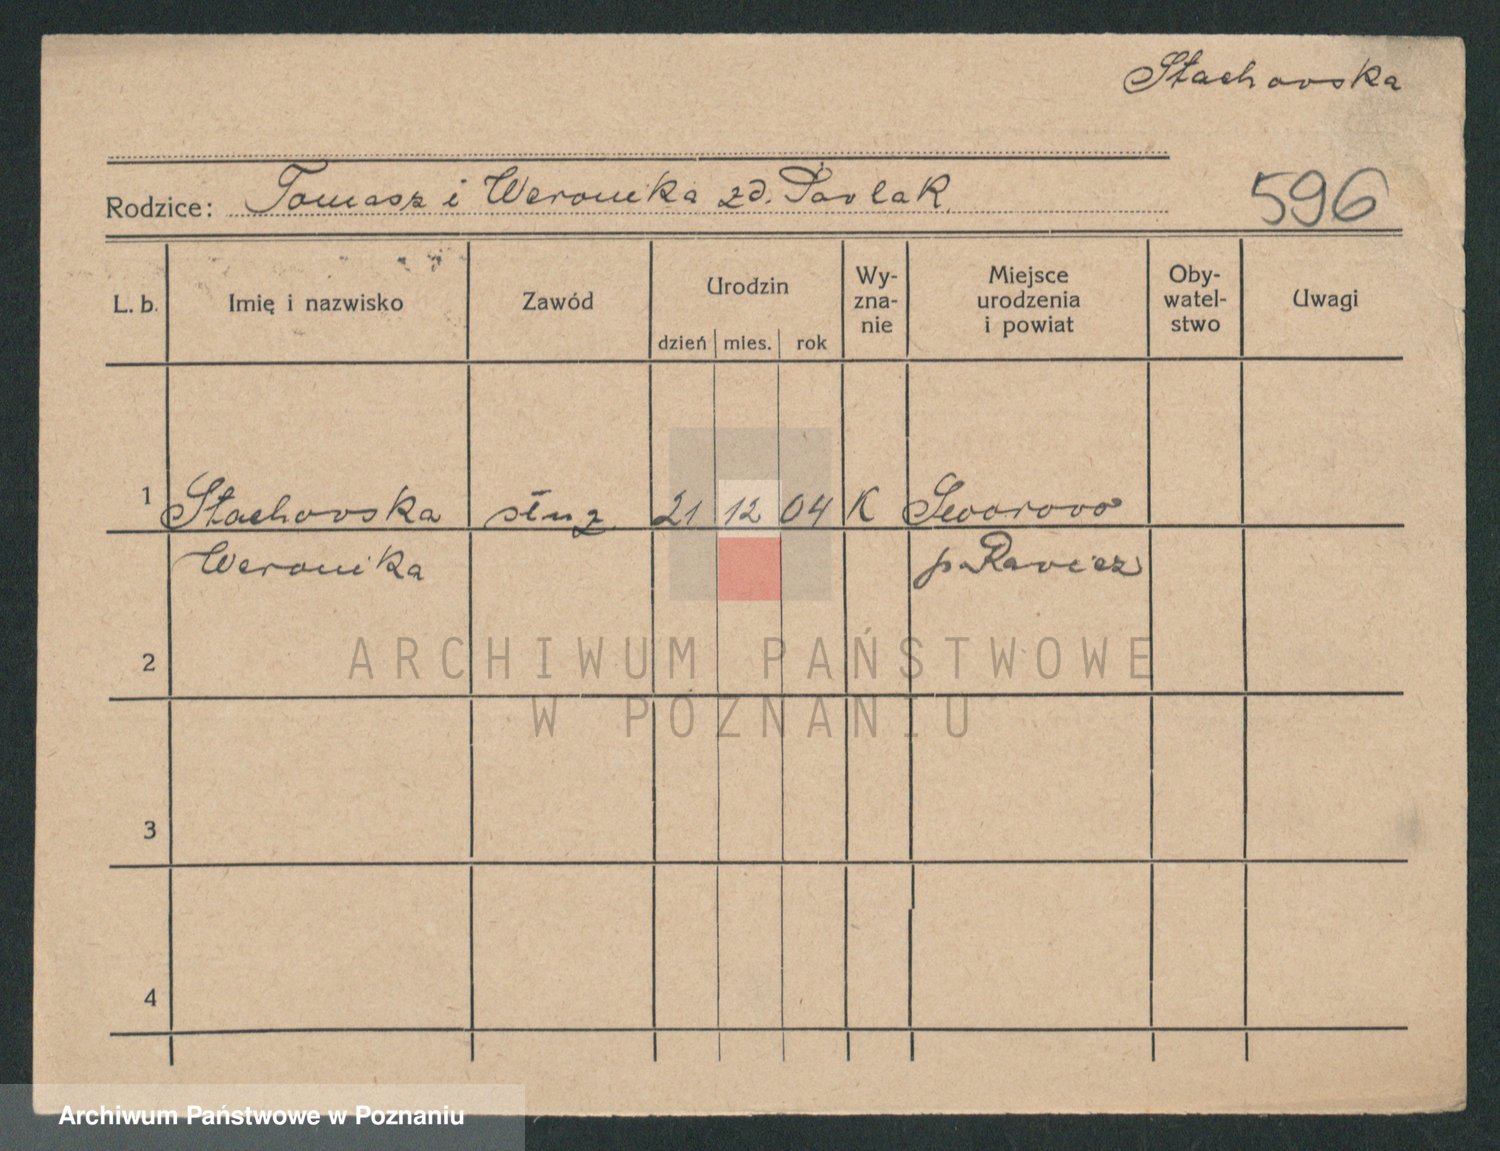 Stachovska
Rodzice: Tomasz i Weronika zd. Pavlak
596
L. b. Imię i nazwisko Zawód Urodzin dzień mies. rok Wy-zna-nie Miejsce urodzenia i powiat Oby-watel-stwo Uwagi
1 Stachovska służ. 21 12 04 K
Weronika p. Ravicz
2
3
4
ARCHIWUM PAŃSTWOWE
W POZNANIU
Archiwum Państwowe w Poznaniu